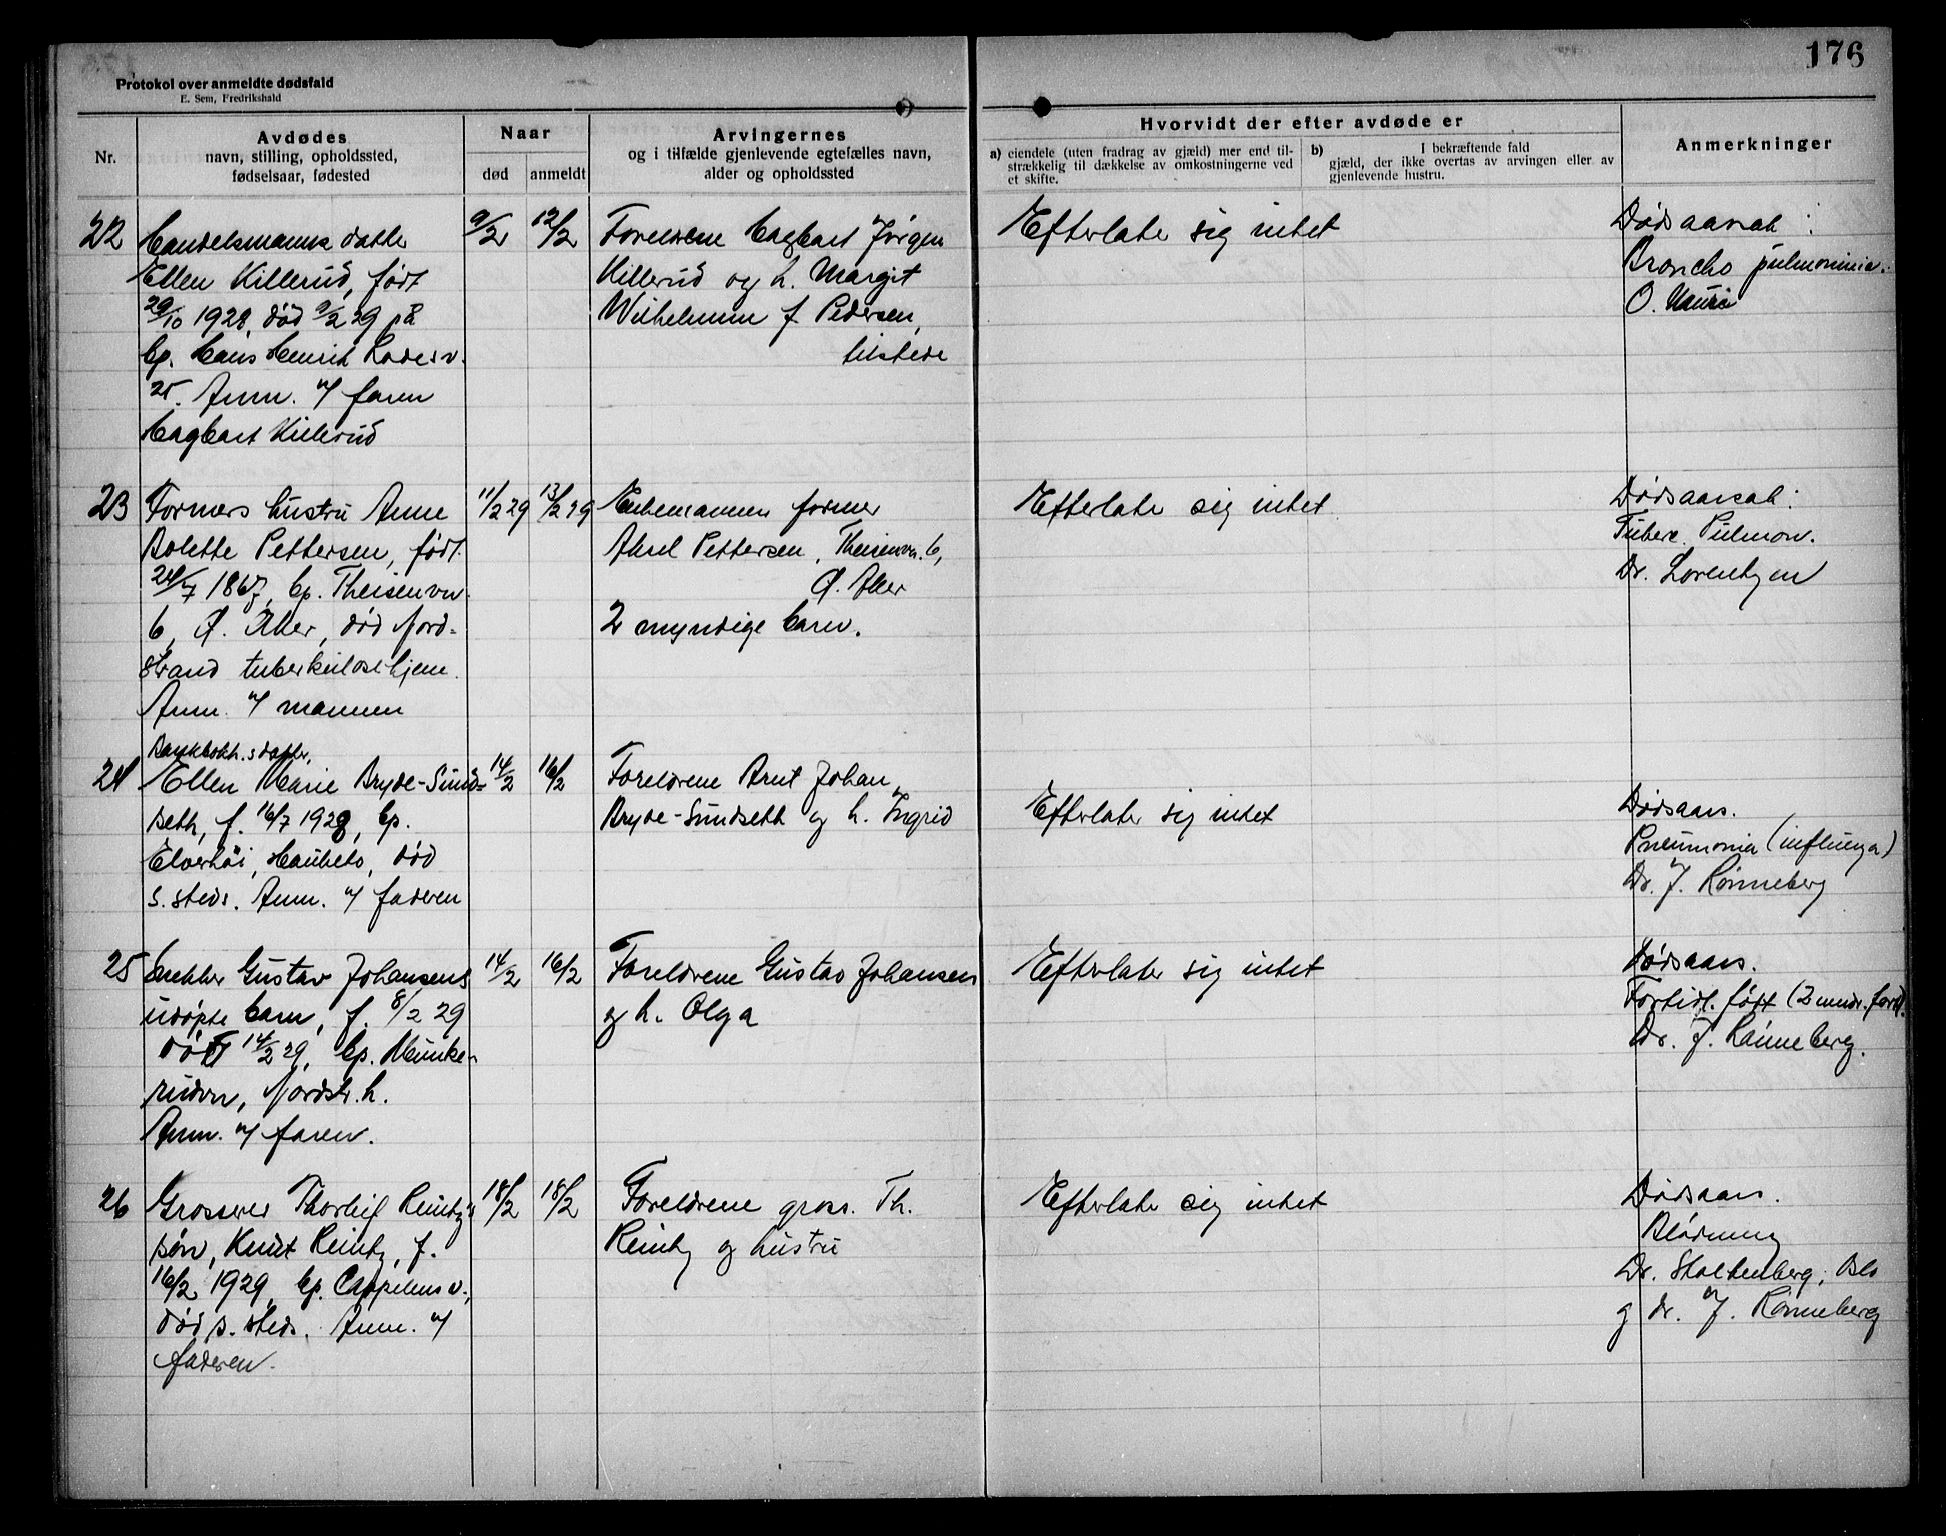 176
Protokol over anmeldte dødsfald
E. Sem, Fredrikshald
Nr.
Avdødes
navn, stilling, opholdssted,
fødselsaar, fødested
Naar
død
anmeldt
Arvingernes
og i tilfælde gjenlevende egtefælles navn,
alder og opholdssted
Hvorvidt der efter avdøde er
a) eiendele (uten fradrag av gjæld) mer end til-
strækkelig til dækkelse av omkostningerne ved
et skifte.
b) I bekræftende fald
gjæld, der ikke overtas av arvingen eller av
gjenlevende hustru.
Anmerkninger
22
Handelsmanns datter
Ellen Killerud, født
29/10 1928, død 9/2 29 på
bp. Hans Henrik
25. Anm. v/ faren
Hagbart Killerud
9/2
12/2
Foreldrene Hagbart Jørgen
Killerud og h. Margit
Wilhelmine f Pedersen,
tilstede
Efterlater sig intet
Dødsaarsak:
Broncho pulmoninia.
O.
23
Formers hustru Anne
Bolette Pettersen, født
24/7 1867, bp. Theisenvn.
6, Ø. Aker, død Nord-
strand tuberkulosehjem.
Anm. v/ mannen
11/2 29
13/2 29
Enkemannen former
Aksel Pettersen, Theisenvn. 6,
Ø. Aker
2 myndige barn.
Efterlater sig intet
Dødsaarsak:
Tuberc. Pulmon.
Dr. Lorentzen
24
Bankbokh.s datter,
Ellen Marie Bryde-Sund-
seth, f. 16/7 1928, bp.
Elverhöi, Hauketo, død
s. steds. Anm. v/ faderen
14/2
16/2
Foreldrene Arnt Johan
Bryde-Sundseth og h. Ingrid
Efterlater sig intet
Dødsaars.
Pneumonia (influenza)
Dr. J. Rønneberg
25
Snekker Gustav Johansens
udøpte barn, f. 8/2 29
død 14/2 29, bp. Munke-
rudvn, Nordstr. h.
Anm. v/ faren.
14/2
16/2
Foreldrene Gustav Johansen
og h. Olga
Efterlater sig intet
Dødsaars.
Fortidl. født (2 mndr. fort.)
Dr. J. Rønneberg.
26
Grosserer Thorleif Reintz's
søn, Knut Reintz, f.
16/2 1929, bp. Cappelens v.,
død s. steds. Anm. v/
faderen.
18/2
18/2
Foreldrene gross. Th.
Reintz og hustru
Efterlater sig intet
Dødsaars.
Blødning
Dr. Stoltenberg, Oslo
og dr. J. Rønneberg